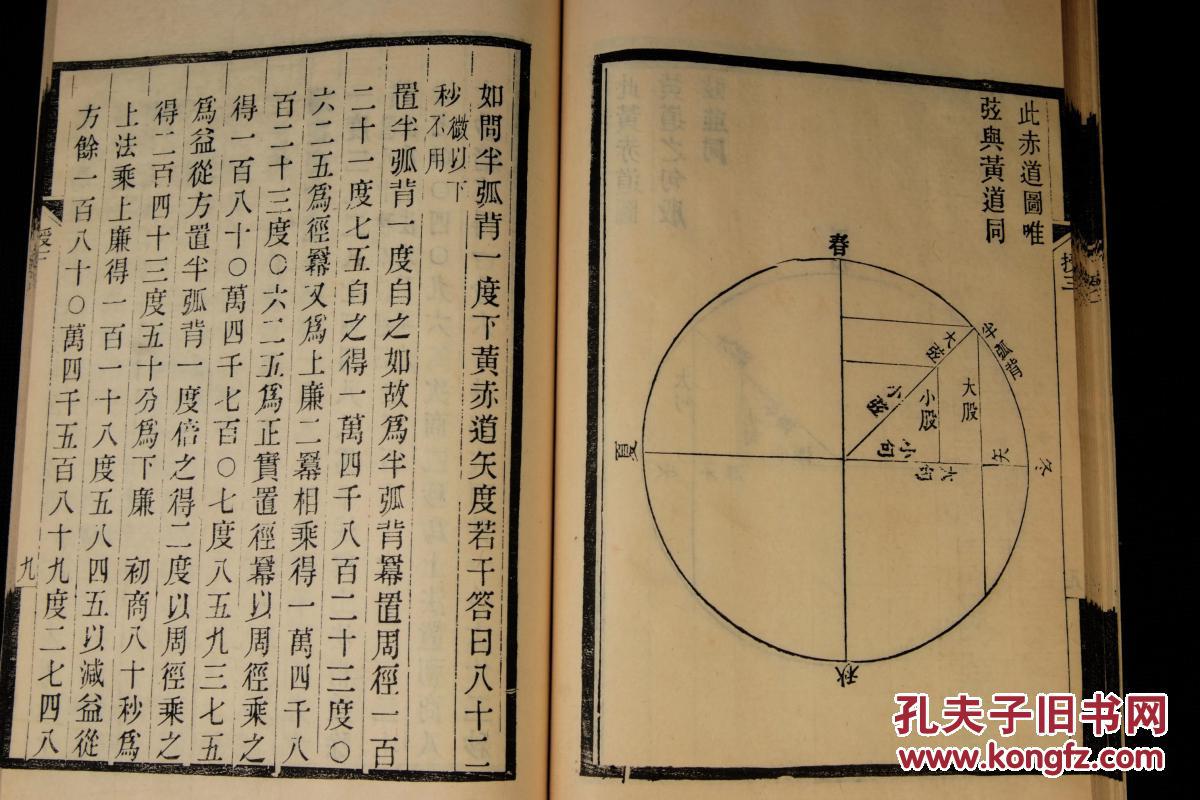 此赤道圖唯
弦與黃道同
春
夏
秋
冬
半弧背
大弦
小弦
大股
小股
小句
大句
矢
如問半弧背一度下黃赤道矢度若干答曰八十二
秒微以下不用
置半弧背一度自之如故為半弧背冪置周徑一百
二十一度七五自之得一萬四千八百二十三度〇
六二五爲徑冪又爲上廉二冪相乘得一萬四千八
百二十三度〇六二五爲正實置徑冪以周徑乘之
得一百八十〇萬四千七百〇七度八五九三七五
爲益從方置半弧背一度倍之得二度以周徑乘之
得二百四十三度五十分爲下廉 初商八十秒爲
上法乘上廉得一百一十八度五八四五以減益從
方餘一百八十〇萬四千五百八十九度二七四八
九
孔夫子旧书网
www.kongfz.com